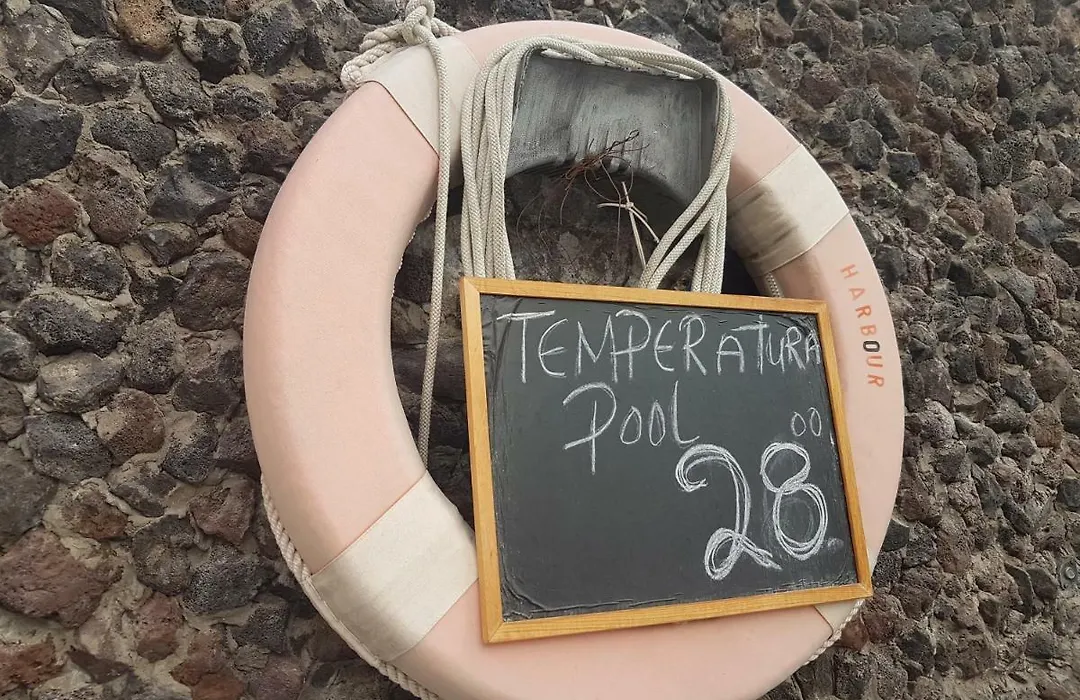 TEMPERATURA
POOL
00
28
HARBOUR